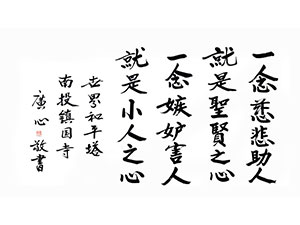 一念慈悲助人
就是聖賢之心
一念嫉妒害人
就是小人之心
世界和平塔
南投鎮国寺
廣心敬書